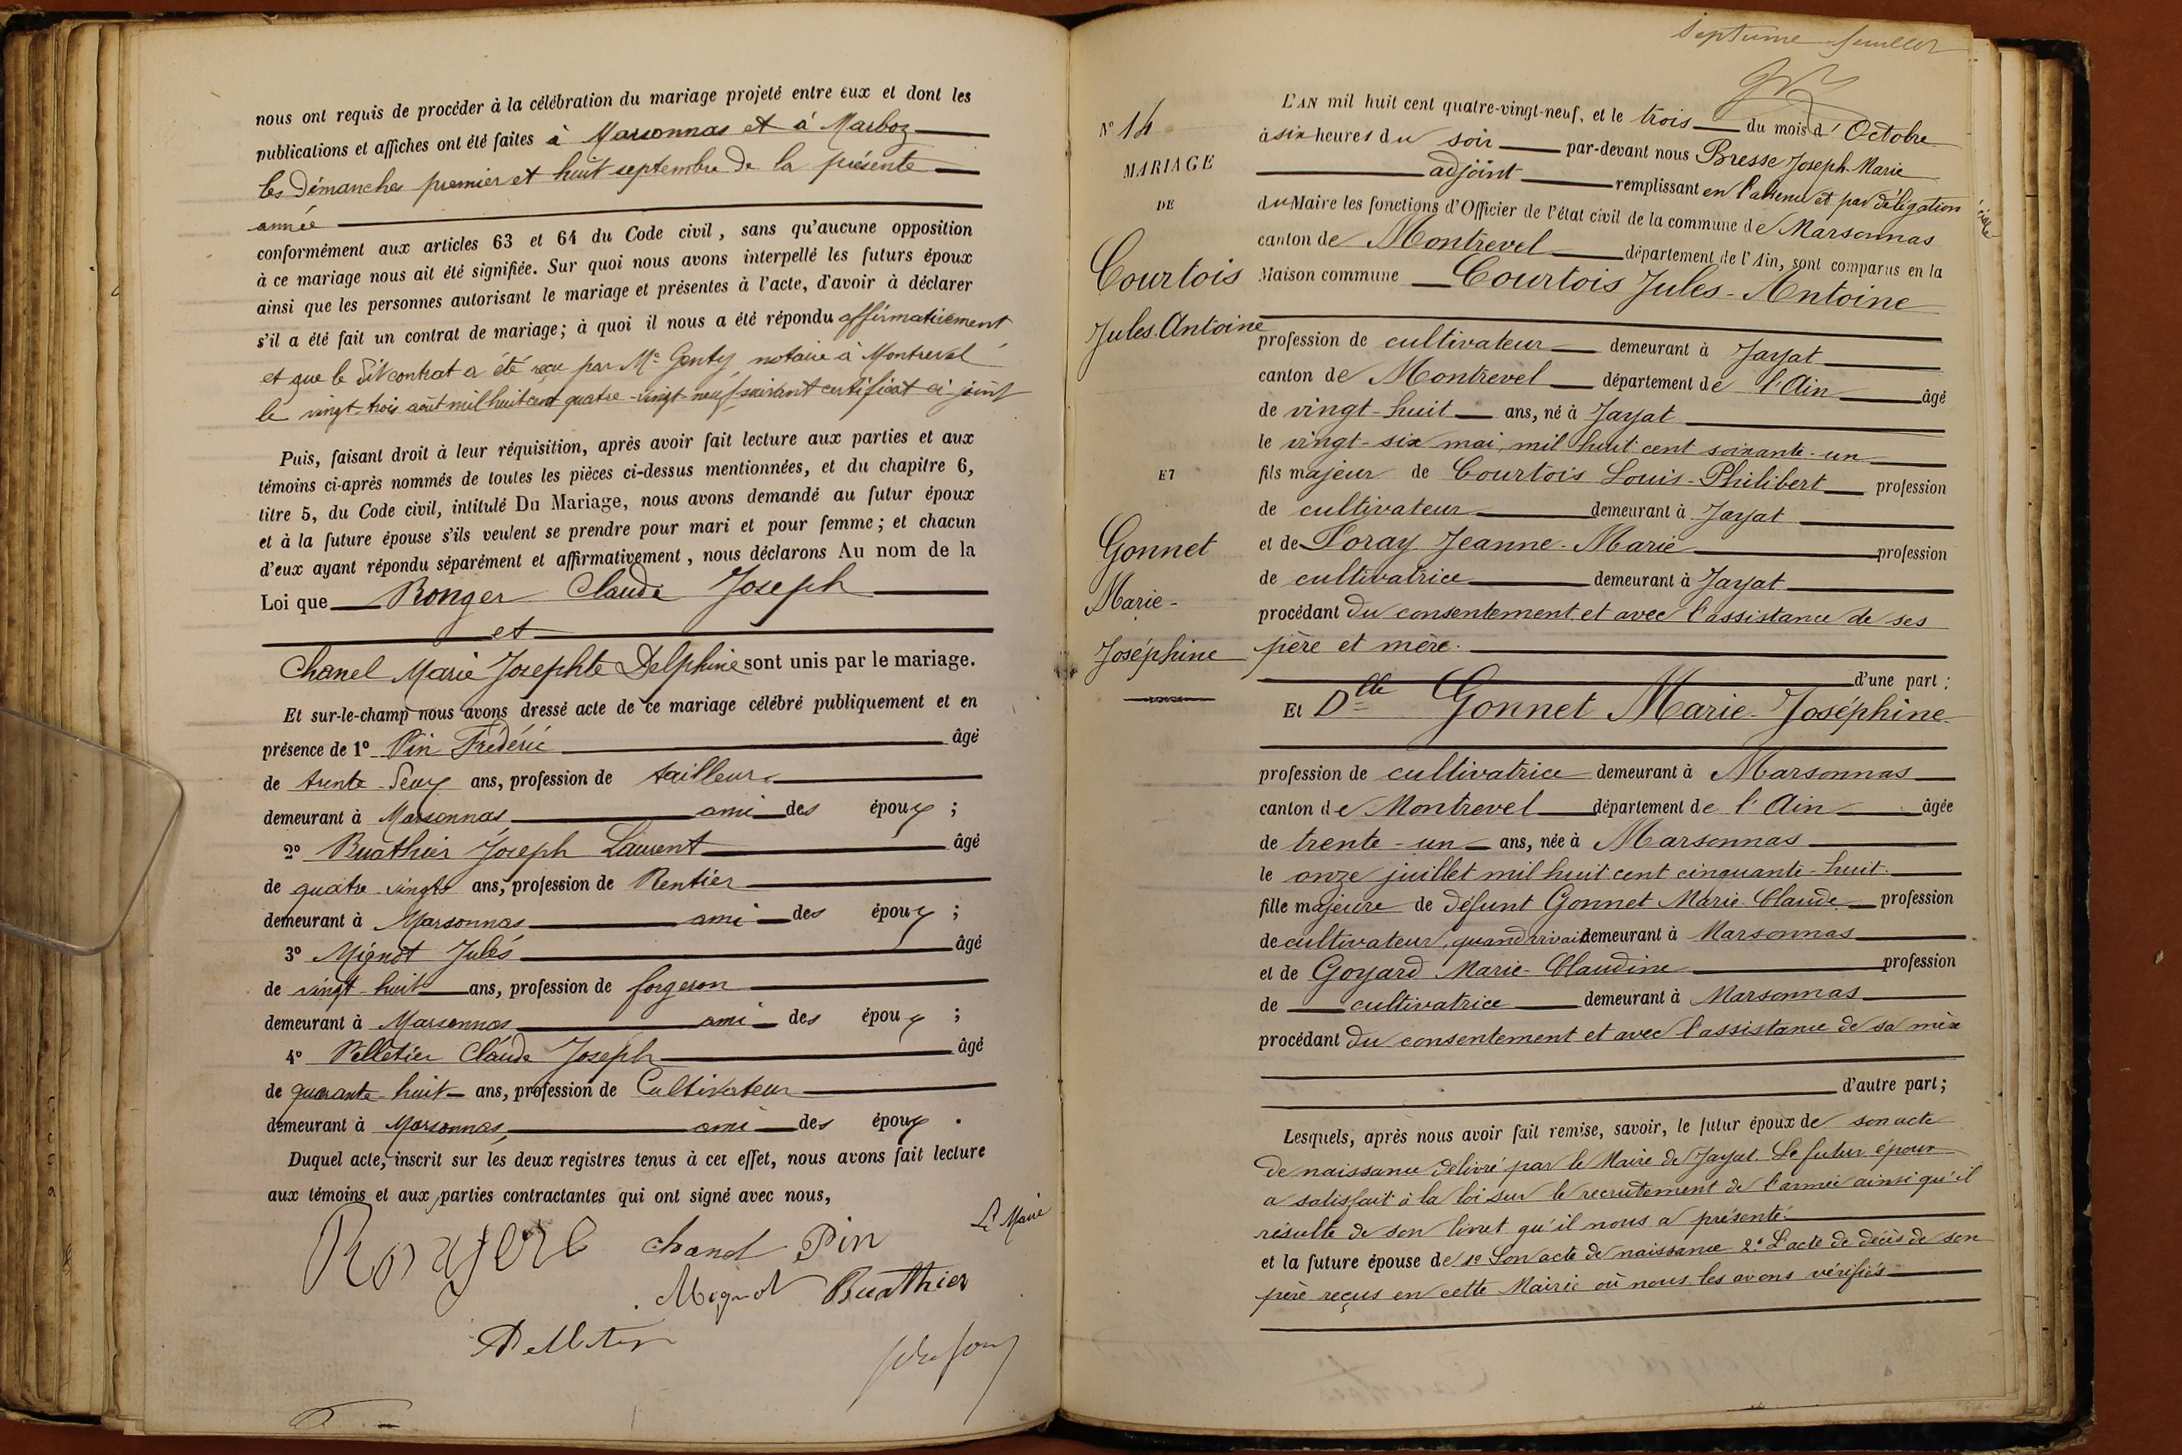 nous ont requis de procéder à la célébration du mariage projeté entre eux et dont les
publications et affiches ont été faites à Marsonnas et à Marboz
les dimanches premier et huit septembre de la présente
année
conformément aux articles 63 et 64 du Code civil, sans qu'aucune opposition
à ce mariage nous ait été signifiée. Sur quoi nous avons interpellé les futurs époux
ainsi que les personnes autorisant le mariage et présentes à l'acte, d'avoir à déclarer
s'il a été fait un contrat de mariage; à quoi il nous a été répondu affirmativement
et que le dit contrat a été reçu par Me Genty notaire à Montrevel
le vingt-trois août mil huit cent quatre-vingt-neuf suivant certificat ci-joint
Puis, faisant droit à leur réquisition, après avoir fait lecture aux parties et aux
témoins ci-après nommés de toutes les pièces ci-dessus mentionnées, et du chapitre 6,
titre 5, du Code civil, intitulé Du Mariage, nous avons demandé au futur époux
et à la future épouse s'ils veulent se prendre pour mari et pour femme; et chacun
d'eux ayant répondu séparément et affirmativement, nous déclarons Au nom de la
Loi que Ronger Claude Joseph
et
Chanel Marie Josephte Delphine sont unis par le mariage.
Et sur-le-champ nous avons dressé acte de ce mariage célébré publiquement et en
présence de 1° Pin Frédéric âgé
de trente-deux ans, profession de tailleur
demeurant à Marsonnas ami des époux;
2° Buathier Joseph Laurent âgé
de quatre-vingts ans, profession de Rentier
demeurant à Marsonnas ami des époux;
3° Mignot Jules âgé
de vingt-huit ans, profession de forgeron
demeurant à Marsonnas ami des époux;
4° Pelletier Claude Joseph âgé
de quarante-huit ans, profession de Cultivateur
demeurant à Marsonnas ami des époux.
Duquel acte, inscrit sur les deux registres tenus à cet effet, nous avons fait lecture
aux témoins et aux parties contractantes qui ont signé avec nous,
Le Maire
Chanel Pin
Mignot Buathier
Pelletier
Septième feuillet
N° 14
MARIAGE
DE
Courtois
Jules Antoine
ET
Gonnet
Marie-
Joséphine
L'AN mil huit cent quatre-vingt-neuf, et le trois du mois d'Octobre
à six heures du soir par-devant nous Bresse Joseph-Marie
adjoint remplissant en l'absence et par délégation
du Maire les fonctions d'Officier de l'état civil de la commune de Marsonnas
canton de Montrevel département de l'Ain, sont comparus en la
Maison commune Courtois Jules-Antoine
profession de cultivateur demeurant à Jayat
canton de Montrevel département de l'Ain âgé
de vingt-huit ans, né à Jayat
le vingt-six mai mil huit cent soixante-un
fils majeur de Courtois Louis-Philibert profession
de cultivateur demeurant à Jayat
et de Foray Jeanne-Marie profession
de cultivatrice demeurant à Jayat
procédant du consentement et avec l'assistance de ses
père et mère.
d'une part;
Et Dlle Gonnet Marie-Joséphine
profession de cultivatrice demeurant à Marsonnas
canton de Montrevel département de l'Ain âgée
de trente-un ans, née à Marsonnas
le onze juillet mil huit cent cinquante-huit.
fille majeure de défunt Gonnet Marie-Claude profession
de cultivateur, quand vivait demeurant à Marsonnas
et de Goyard Marie-Claudine profession
de cultivatrice demeurant à Marsonnas
procédant du consentement et avec l'assistance de sa mère
d'autre part;
Lesquels, après nous avoir fait remise, savoir, le futur époux de son acte
de naissance délivré par le Maire de Jayat. Le futur époux
a satisfait à la loi sur le recrutement de l'armée ainsi qu'il
résulte de son livret qu'il nous a présenté.
et la future épouse de 1° Son acte de naissance 2° L'acte de décès de son
père reçus en cette Mairie où nous les avons vérifiés